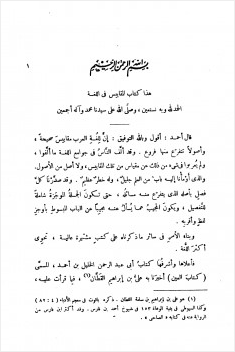 بسم الله الرحمن الرحيم
١
هذا كتاب المقاييس فى اللغة
الحمد لله وبه نستعين ، وصلَّى الله على سيدنا محمد وآله أجمعين
قال أحمد : أقول وبالله التوفيق : إنّ للغة العرب مقاييسَ صحيحة ،
وأصولاً تتفرّع منها فروع . وقد ألّف الناسُ فى جوامع اللغة ما ألّفوا ،
ولم يُعربوا فى شىء من ذلك عن مقياس من تلك المقاييس ، ولا أصل من الأصول .
والذى أومأنا إليه باب من العلم جليل ، وله خطر عظيم . وقد صدّرنا كلّ
فصل بأصله الذى يتفرّع منه مسائله ، حتى تكون الجملة الموجزة شاملةً
للتفصيل ، ويكون المجيب عما يُسأل عنه مجيباً عن الباب المبسوط بأوجز
لفظ وأقربه .
وبناء الأمر فى سائر ما ذكرناه على كتب مشتهرة عالية ، تحوى
أكثر اللغة .
فأعلاها وأشرفها كتاب أبى عبد الرحمن الخليل بن أحمد ، المسمَّى
(كتاب العين) أخبرنا به علىُّ بن إبراهيم القطَّان (١) ، فيما قرأت عليه ،
(١) هو على بن إبراهيم بن سلمة القطان ، ذكره ياقوت فى معجم الأدباء (٤ : ٨٢)